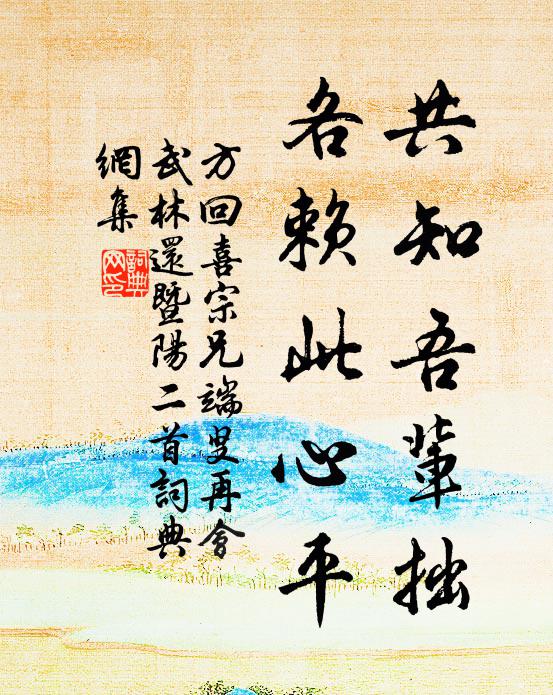 共知吾輩拙
各賴此心平
方回喜宗兄端叟再會
武林還暨陽二首詞典
網集
詞典
网印